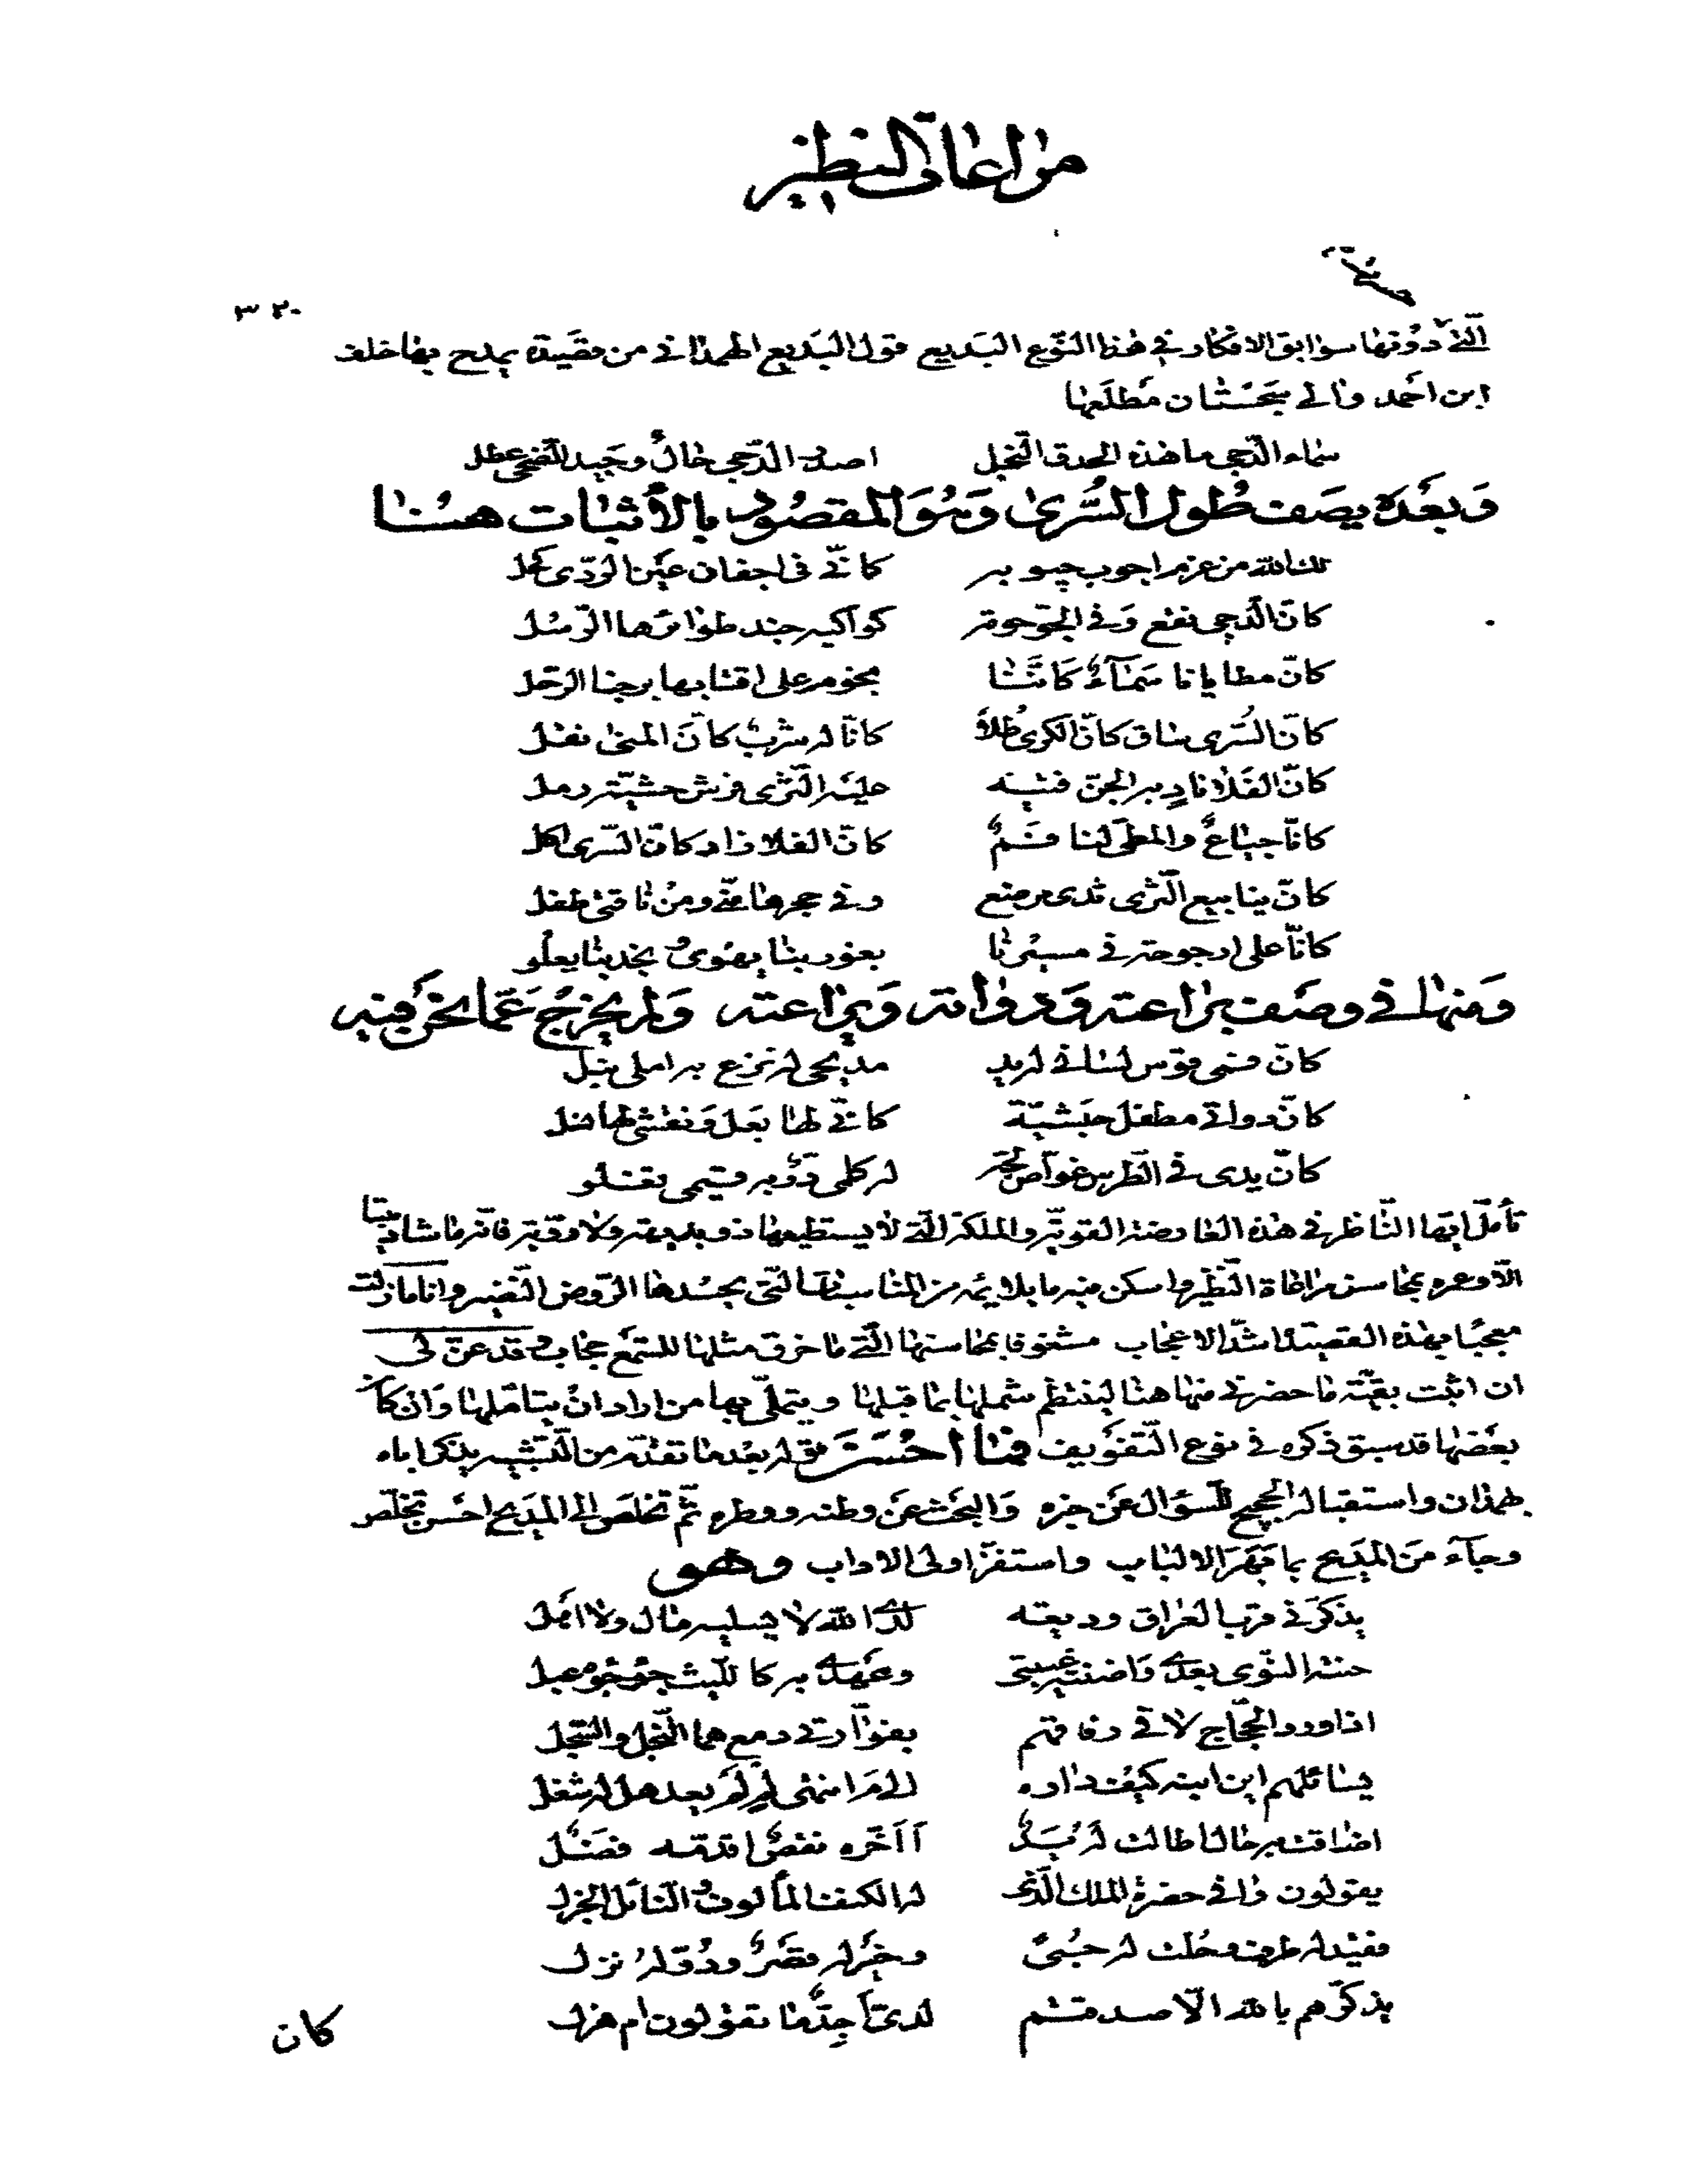 مراعاة النظير
٣٢٠
الّتى دونها سوابق الافكار فى هذا النّوع البديع قول البديع الهمذانى من قصيدة يمدح بها خلف
ابن احمد والى سجستان مطلعها
سماء الدّجى ما هذه الحدق النّجل اصدر الدّجى حال وجيد الضّحى عطل
وبعده يصف طول السّرى وهو المقصود بالاثبات هٰهنا
لك الله من عزم اجوب جيوبه كانّى فى اجفان عين الرّدى كحل
كانّ الدّجى نقع وفى الجوّ حومة كواكبه جند طوائرها الرّسل
كانّ مطايانا سماء كانّنا نجوم على اقتابها برجنا الرّحل
كانّ السّرى ساق كانّ الكرى طلا كانّا له شرب كانّ المنى نقل
كانّ الفلا ناد به الجنّ فتية عليه الثّرى فرش حشيّته رمل
كانّا جياع والمطىّ لنا فم كانّ الفلا زاد كانّ السّرى اكل
كانّ ينابيع الثّرى ثدى مرضع وفى حجرها منّى ومن ناقتى طفل
كانّا على ارجوحة فى مسيرنا بغور بنا يهوى بنجد بنا يعلو
ومنها فى وصف يراعته ودواته وبراعته ولم يخرج عمّا نحن فيه
كانّ فمى قوس لسانى له يد مديحى له نزع به املى نبل
كانّ دواتى مطفل حبشيّة كانّى لها بعل ونقشى لها نسل
كانّ يدى فى الطّرس غوّاص لجّة له كلمى درّ به قيمى تغلو
تأمّل ايّها النّاظر فى هذه العارضة القويّة والملكة الّتى لا يستطيعها ذو بديهة ولا رويّة فانّه ما شاد بيتا
الّا وعمره بمحاسن مراعاة النّظير واسكن فيه ما يلائمه من المناسبات الّتى يحسدها الرّوض النّضير وانا ما زلت
معجبا بهذه القصيدة اشدّ الاعجاب مشغوفا بمحاسنها الّتى ما خرق مثلها للسّمع حجاب وقد عنّ لى
ان اثبت بقيّة ما حضرنى منها هنا لينتظم شملها بما قبلها ويتملّى بها من اراد ان يتأمّلها وان كان
بعضها قد سبق ذكره فى نوع التّفويف فما احسن قوله بعد ما تقدّم من التّشبيه يذكر اباه
بهمذان واستقباله الحجيج للسّؤال عن خبره والبحث عن وطنه ووطره ثمّ تخلّص الى المديح احسن تخلّص
وجآء من المديح بما قهر الالباب واستفزّ اولى الاداب وهو
يذكّرنى قرب العراق وديعة لدى الله لا يسليه مال ولا اهل
حنته النّوى بعدى واضنته غيبتى وعهدى به كاللّيث جؤجؤه عبل
اذا ورد الحجّاج لاقى رفاقهم بفوّارتى دمع هما النّجل والسّجل
يسائلهم اين ابنه كيف داره الى م انتهى لم لم يعد هل له شغل
اضاقت به حال اطالت له يد أاخّره نقص اقدّمه فضل
يقولون وافى حضرة الملك الّذى له الكنف المأمول والنّائل الجزل
ففيد له طرف وحلّت له حبى وخير له قصر ودرّ له نزل
يذكّرهم بالله الّا صدقتم لدىّ اجدّ ما تقولون ام هزل
كان